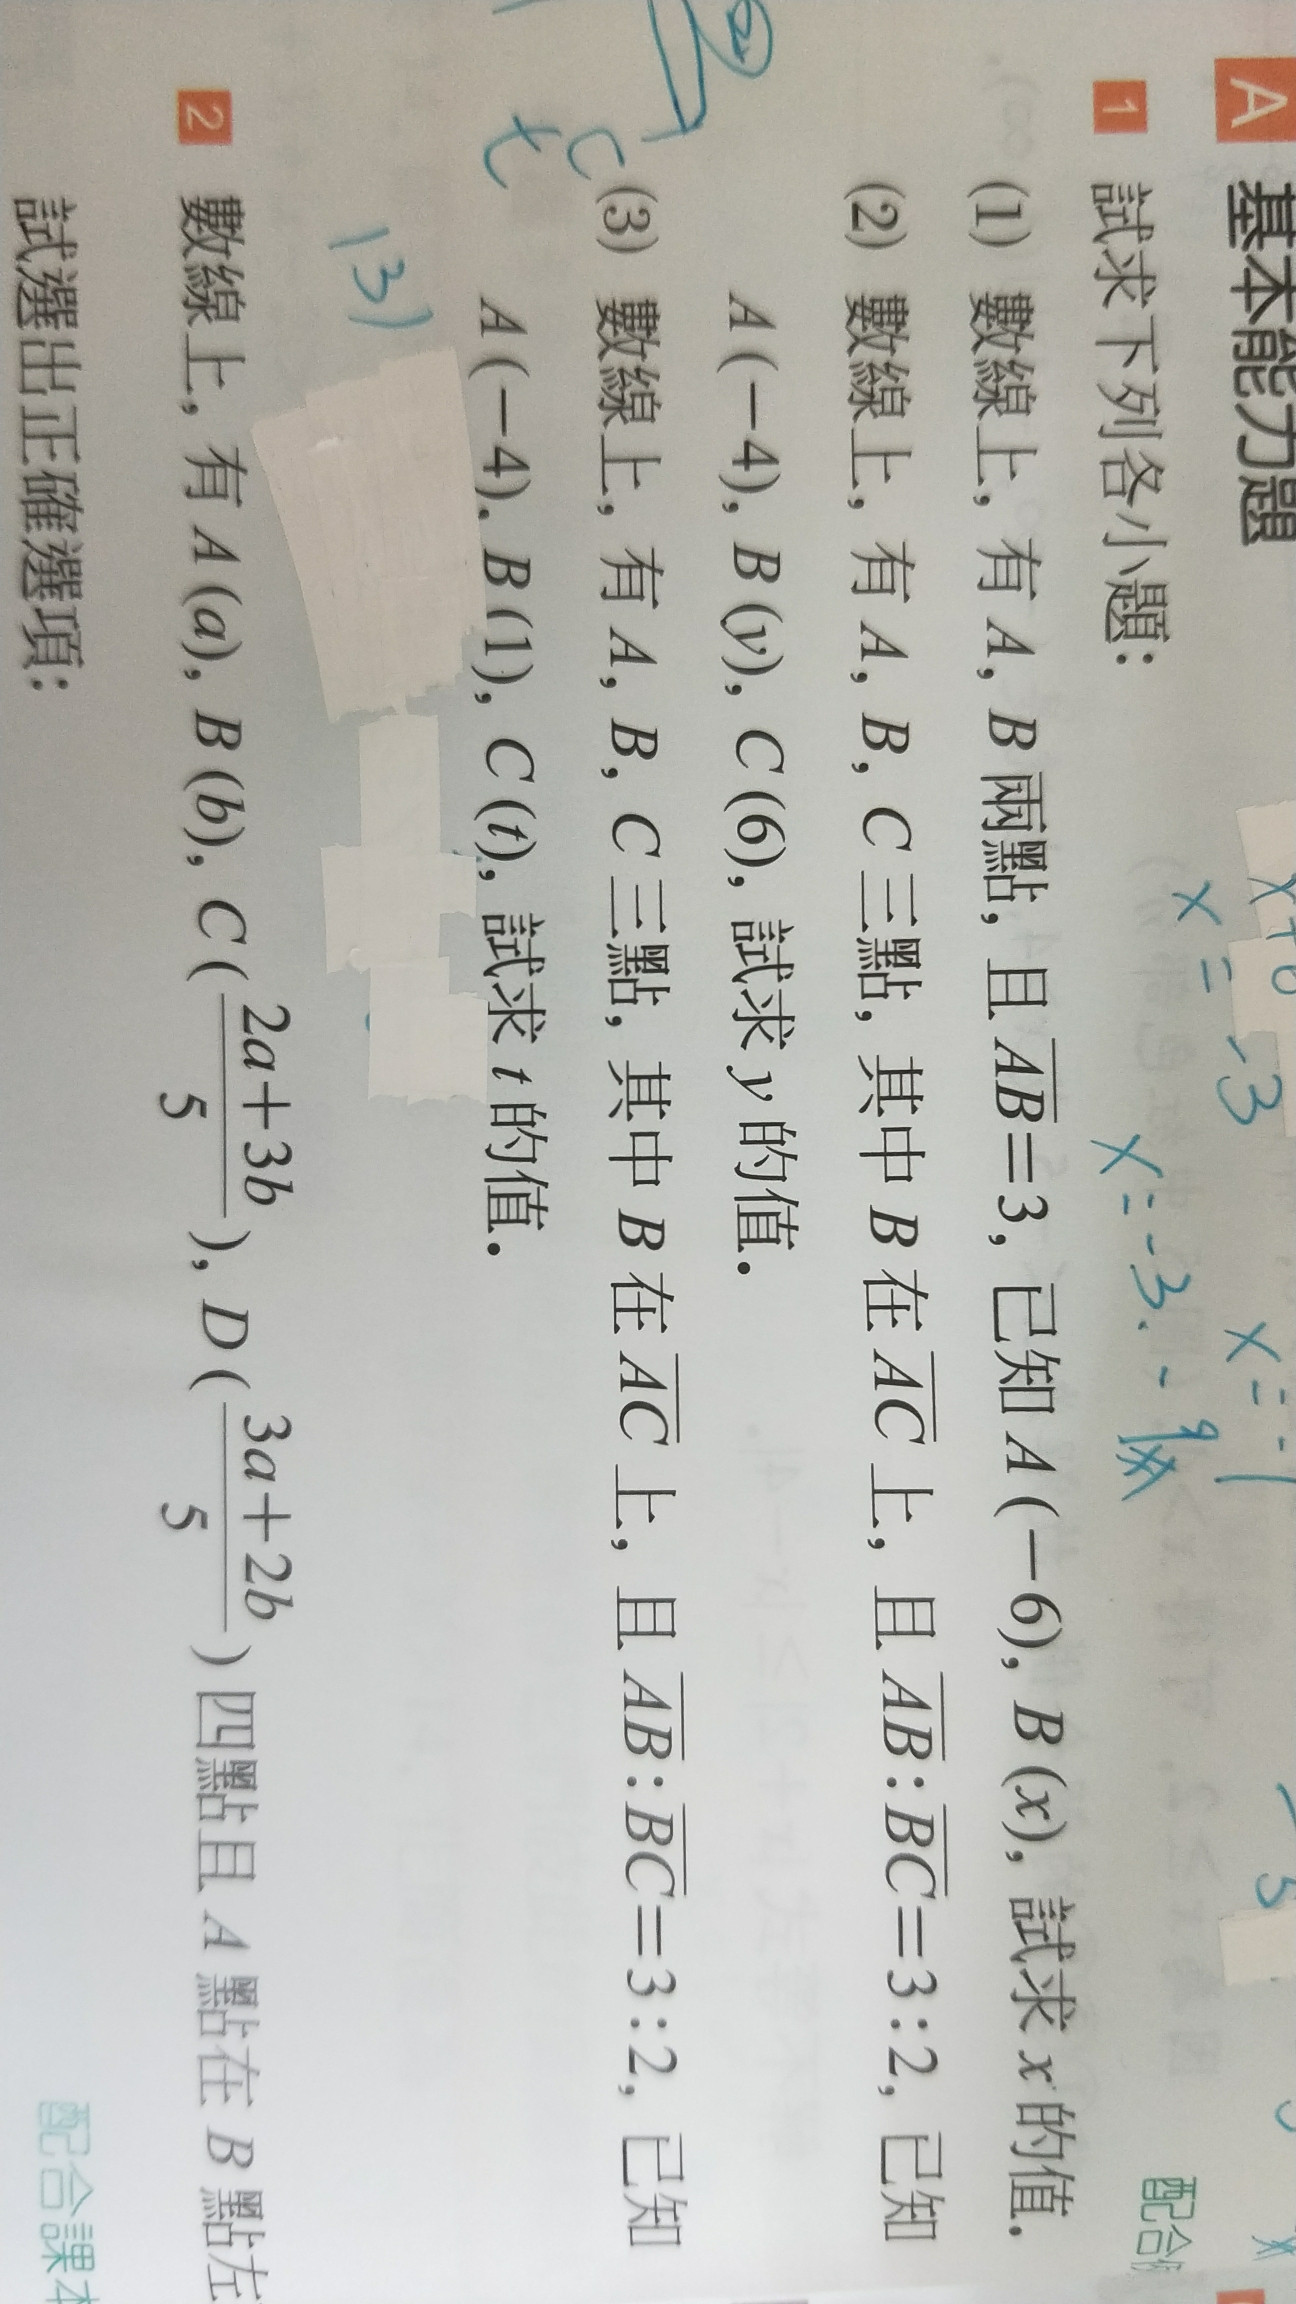 A 基本能力題
x=-3
x=-1
x=-3.-9
1 試求下列各小題：
配合
(1) 數線上，有 A, B 兩點，且 AB=3，已知 A(-6), B(x)，試求 x 的值．
(2) 數線上，有 A, B, C 三點，其中 B 在 AC 上，且 AB:BC=3:2，已知
A(-4), B(y), C(6)，試求 y 的值．
(3) 數線上，有 A, B, C 三點，其中 B 在 AC 上，且 AB:BC=3:2，已知
A(-4), B(1), C(t)，試求 t 的值．
C
t
13)
2 數線上，有 A(a), B(b), C(2a+3b/5), D(3a+2b/5) 四點且 A 點在 B 點左
試選出正確選項：
配合課本